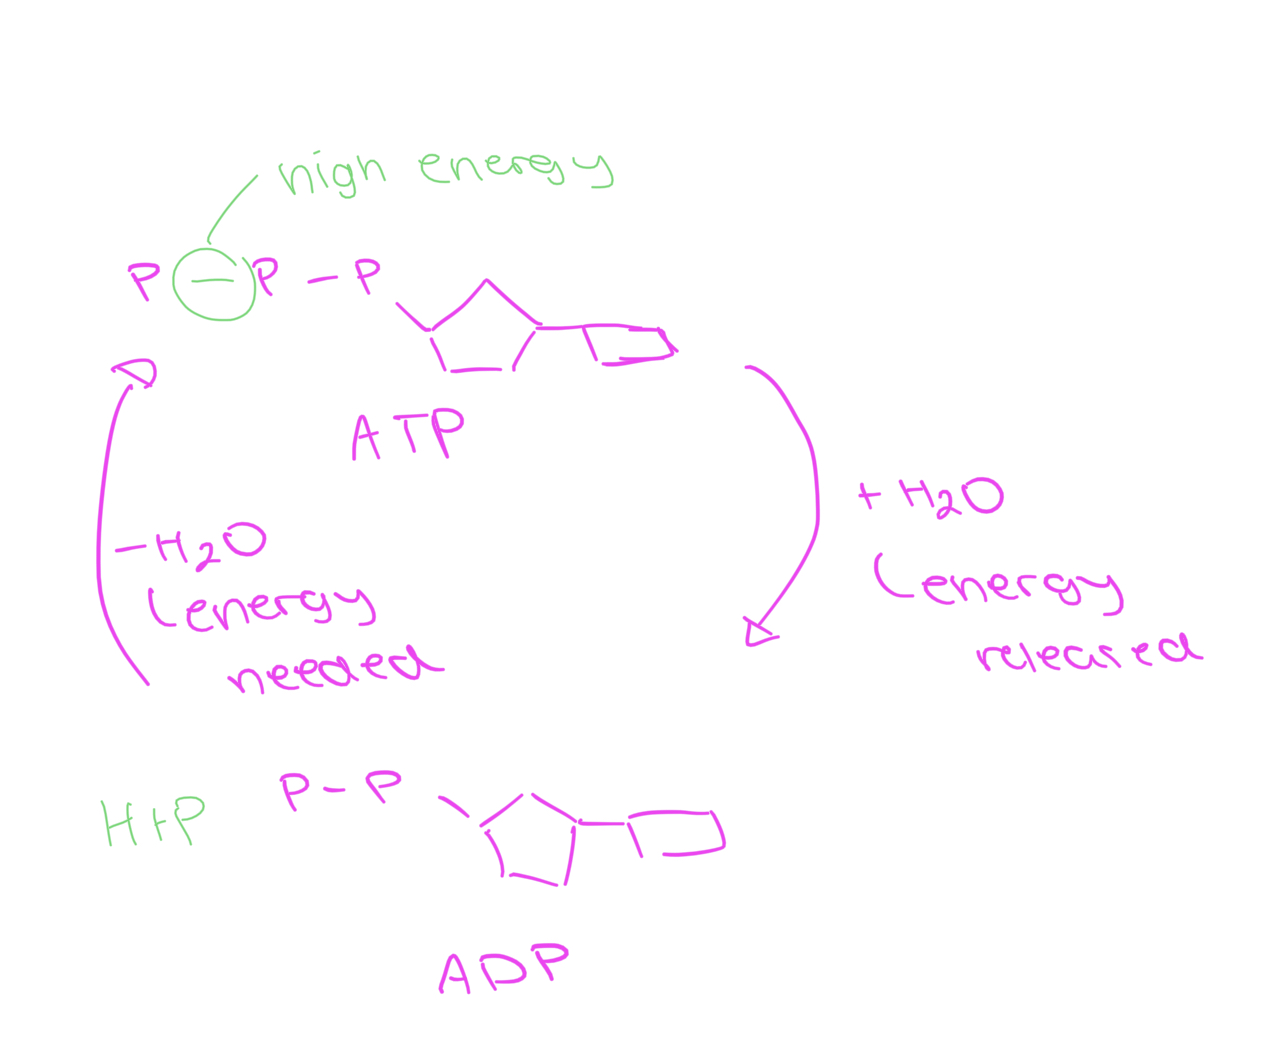 high energy
P - P - P
ATP
+ H2O
(energy
released
- H2O
(energy
needed
H+P
P - P
ADP